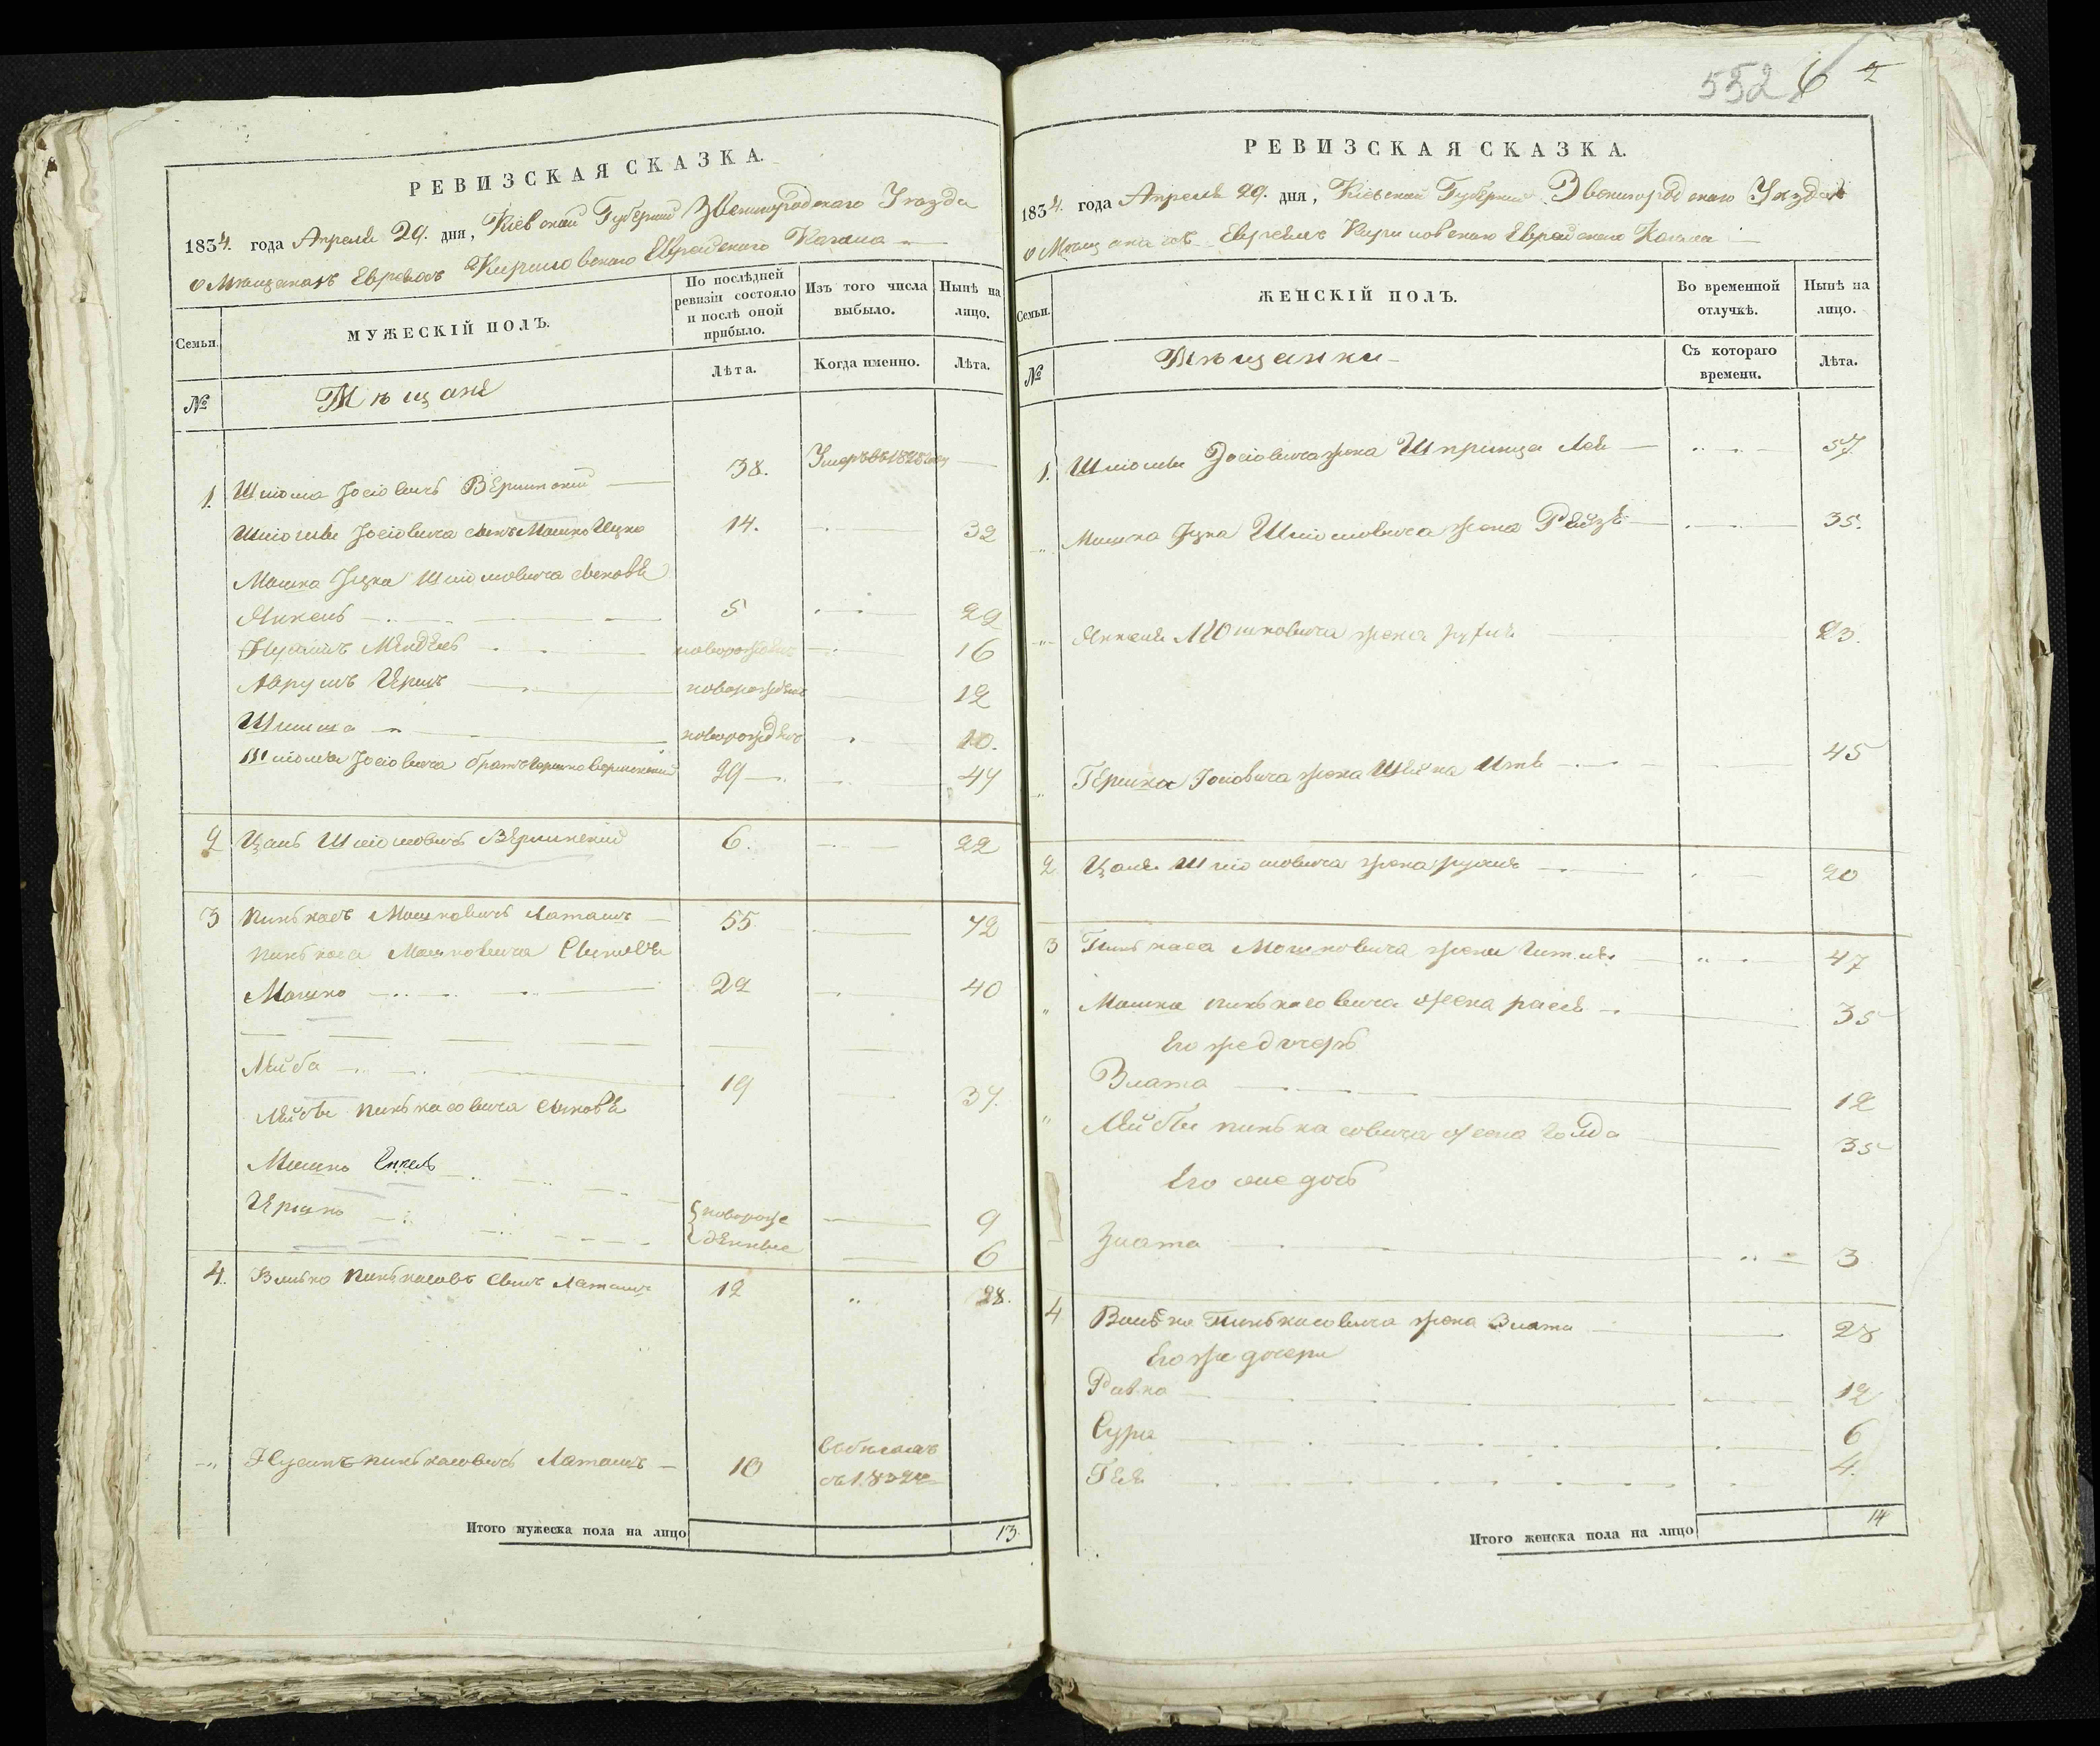 РЕВИЗСКАЯ СКАЗКА.
1834. года Апреля 29. дня, Кіевской Губерніи Звенигородскаго Уезда
о Мѣщанахъ Евреяхъ Кириловскаго Еврейскаго Кагала
Семьи.
МУЖЕСКІЙ ПОЛЪ.
По послѣдней ревизіи состояло и послѣ оной прибыло.
Изъ того числа выбыло.
Нынѣ на лицо.
№
Мѣщане
Лѣта.
Когда именно.
Лѣта.
1. Шліома Іосіовичъ 38. Умеръ въ 1825
Шліомы Іосіовича сынъ Мошко Ицко 14. 32
Мошка Іцка Шліомовича сыновья
Янкель 5 22
Мендель новорожденъ 16
Аврумъ Герш новорожденъ 12
Шимша новорожденъ 10.
Шліомы Іосіовича братъ Гершко 29 44
2 Шліомовичъ 6. 22
3 Пинькасъ Мошковичъ Латашъ 55 72
Пинькаса Мошковича Сыновья
Мошко 22 40
Лейба 19 37.
Лейбы Пинькасовича сыновья
Мошко
Гершко
новорожденные 9
6
4. Волько Пинькасовъ сынъ Латашъ 12 28.
Нусинъ Пинькасовичъ Латашъ 10 въ бегахъ съ 1832
Итого мужеска пола на лицо 13
552 6 2
РЕВИЗСКАЯ СКАЗКА.
1834. года Апреля 29. дня, Кіевской Губерніи Звенигородскаго Уезда
о Мѣщанахъ Евреяхъ Кириловскаго Еврейскаго Кагала
Семьи.
ЖЕНСКІЙ ПОЛЪ.
Во временной отлучкѣ.
Нынѣ на лицо.
№
Мѣщанки
Съ котораго времени.
Лѣта.
1. Шліомы Іосіовича жена Шпринца Лея 57
Мошка Іцка Шліомовича жена Рейзя 35.
Янкеля Мошковича жена 23.
Гершка Іосіовича жена Шейна 45
2 Шліомовича жена 20
3 Пинькаса Мошковича жена Гитля 47
Мошка Пинькасовича жена 35
Его же дочерь
Злата 12
Лейбы Пинькасовича жена Голда 35
Его же дочь
Злата 3
4 Волька Пинькасовича жена Злата 28
Его же дочери
Ривка 12
Сура 6
Гея 4.
Итого женска пола на лицо 14